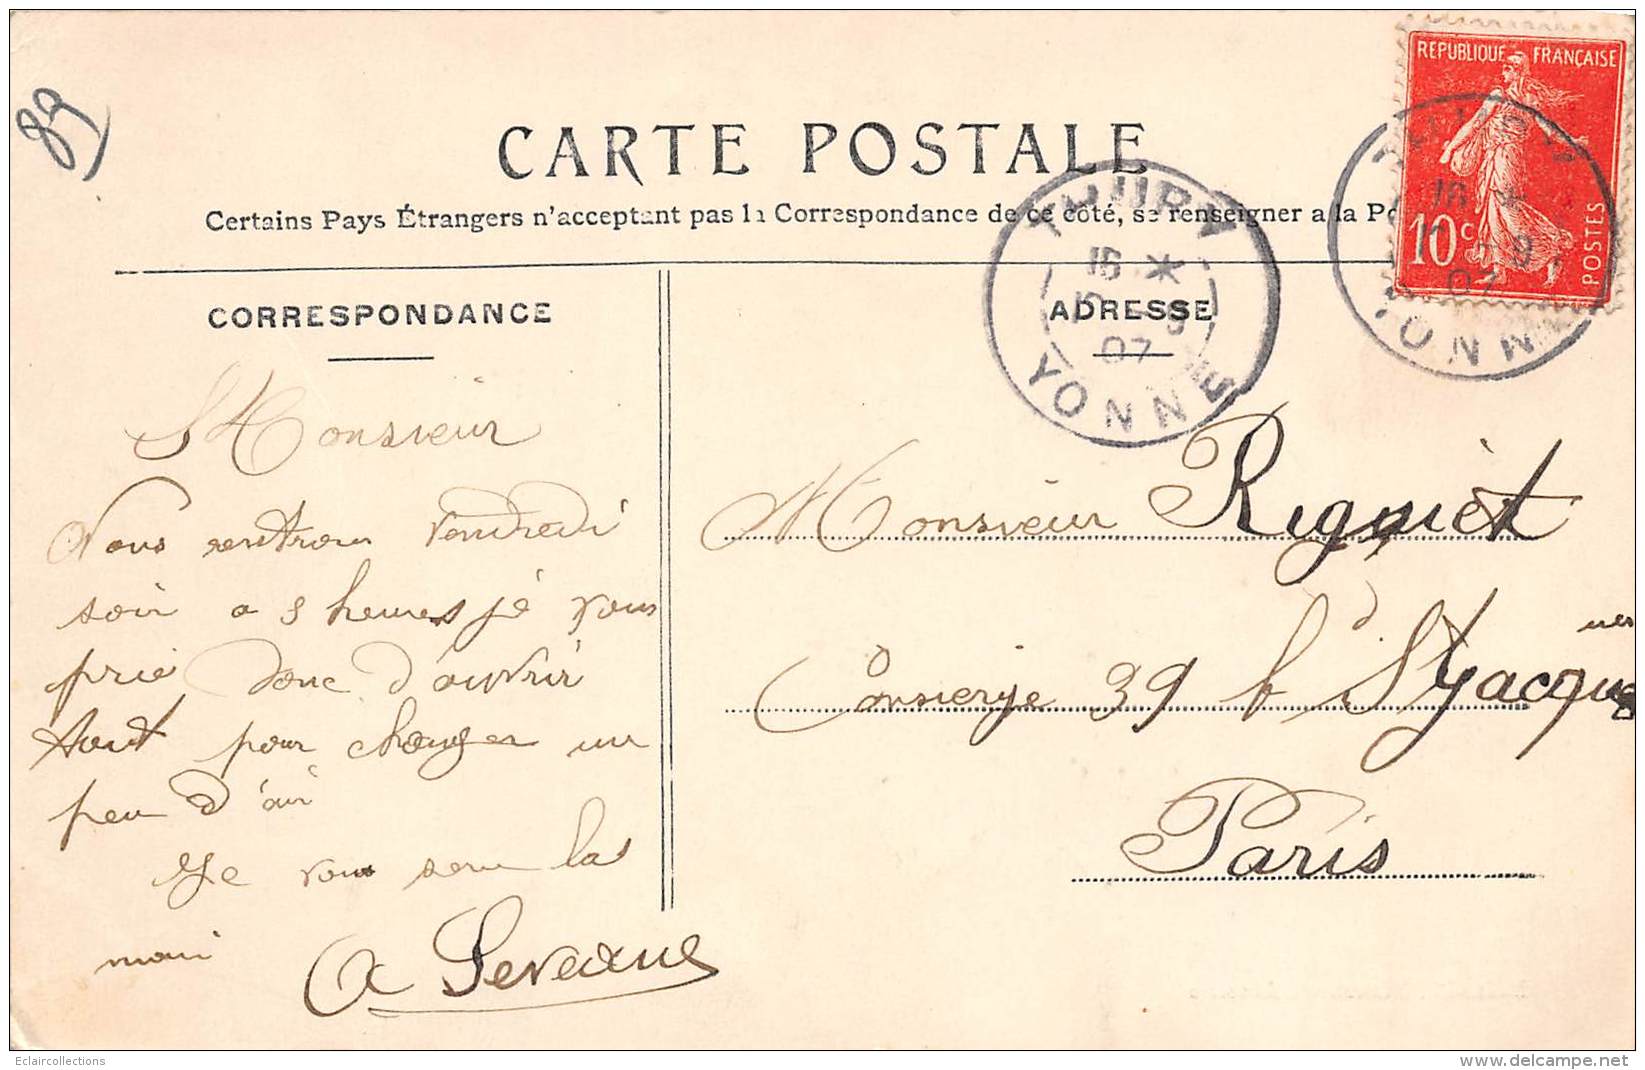 89
REPUBLIQUE FRANÇAISE
10c POSTES
CARTE POSTALE
Certains Pays Étrangers n'acceptent pas la Correspondance de ce côté, se renseigner a la Po
THURY
16 *
9
07
YONNE
THURY
16 *
9
07
YONNE
CORRESPONDANCE
ADRESSE
Monsieur
Nous rentron vendredi
soir a 3 heures je vous
prie donc d'ouvrir
tout pour changer un
peu d'air
Je vous serre las
main
Monsieur Riguiet
Consierge 39 b d St Jacques
Paris
Eclaircollections
www.delcampe.net